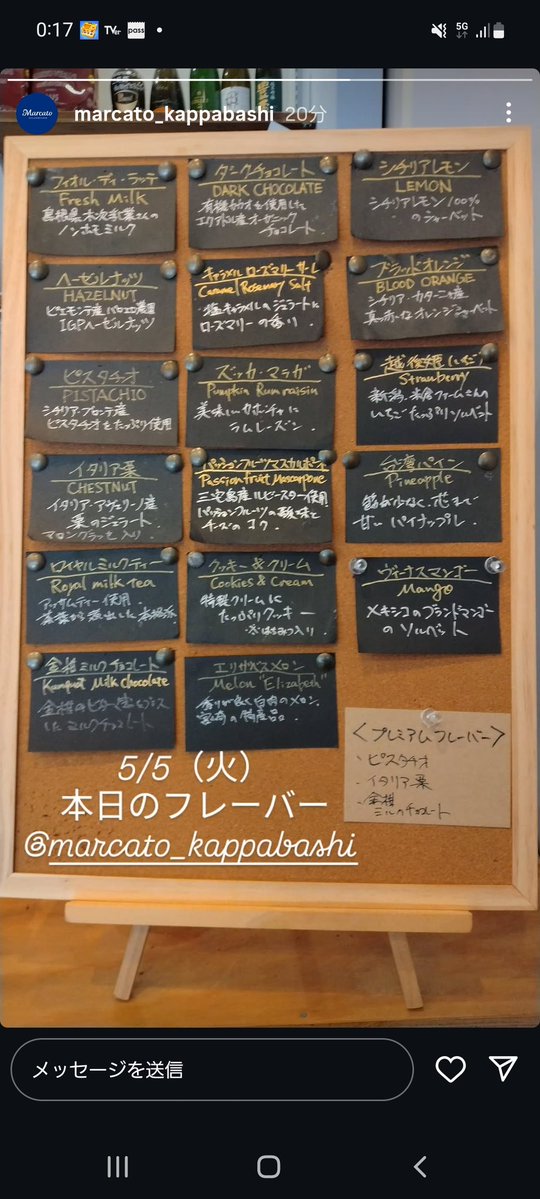 0:17
TVer
pass
5G
Marcato
marcato_kappabashi 20分
フィオル・ディ・ラッテ
Fresh Milk
島根県木次乳業さんの
ノンホモミルク
ダークチョコレート
DARK CHOCOLATE
有機カカオを使用した
エクアドル産オーガニック
チョコレート
シチリアレモン
LEMON
シチリアレモン100%
のシャーベット
ヘーゼルナッツ
HAZELNUT
ピエモンテ産
IGPヘーゼルナッツ
キャラメルローズマリーサーレ
Caramel Rosemary Salt
塩キャラメルのジェラートに
ローズマリーの香り.
ブラッドオレンジ
BLOOD ORANGE
シチリア・カターニャ産
真っ赤なオレンジシャーベット
ピスタチオ
PISTACHIO
シチリア・ブロンテ産
ピスタチオをたっぷり使用
ズッカ・マラガ
Pumpkin Rumraisin
美味しいカボチャに
ラムレーズン.
越後姫(いちご)
Strawberry
新潟、米倉ファームさんの
いちごたっぷりソルベット
イタリア栗
CHESTNUT
イタリア・アヴェリーノ産
栗のジェラート.
マロングラッセ入り.
パッションフルーツマスカルポーネ
Passionfruit Mascarpone
三宅島産ルビースター使用
パッションフルーツの酸味と
チーズのコク.
台湾パイン
Pineapple
筋が少なく、芯まで
甘いパイナップル.
ロイヤルミルクティー
Royal milk tea
アッサムティー使用.
茶葉から煮出した本格派
クッキー&クリーム
Cookies & Cream
特製クリームに
たっぷりクッキー
・はちみつ入り.
ヴィーナスマンゴー
Mango
メキシコのブランドマンゴー
のソルベット
金柑ミルクチョコレート
Kumquat Milk chocolate
金柑のピール
したミルクチョコレート
エリザベスメロン
Melon "Elizabeth"
香りが良く白肉のメロン.
宮崎の特産品.
<プレミアムフレーバー>
・ピスタチオ
・イタリア栗
・金柑
ミルクチョコレート
5/5（火）
本日のフレーバー
@marcato_kappabashi
メッセージを送信